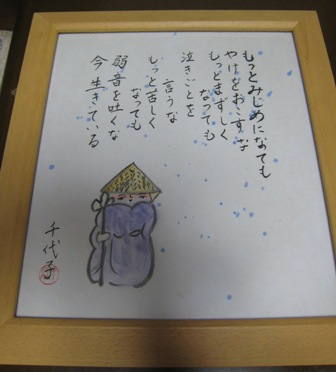 もっとみじめになても
やけをおこすな
もっとまずしく
なっても
泣きごとを
言うな
もっと苦しく
なっても
弱音を吐くな
今生きている
千代子